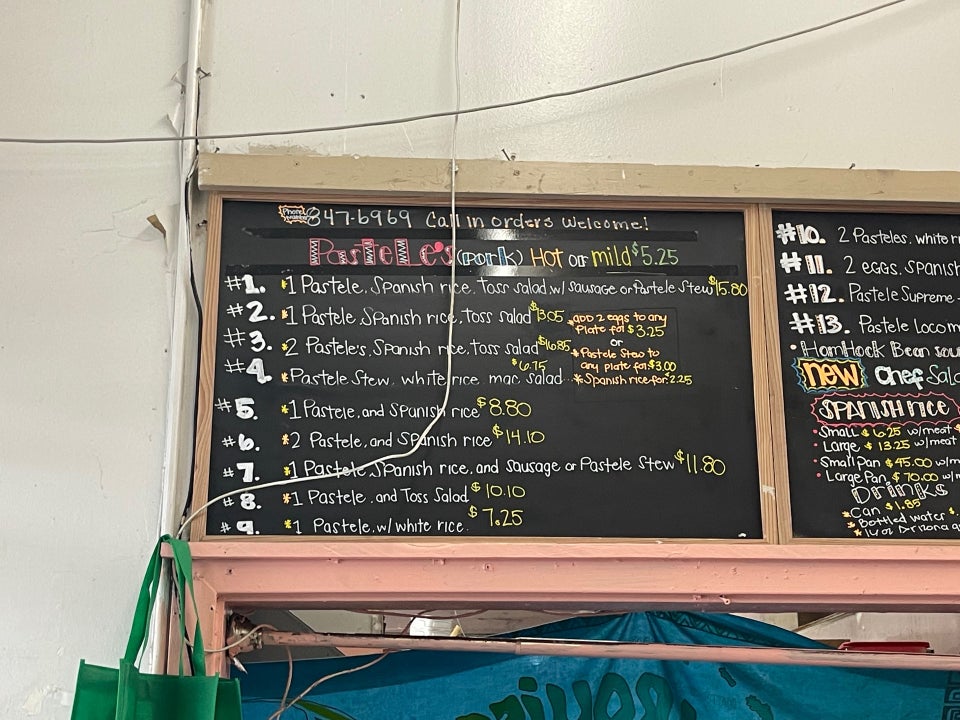 Phone number 847-6969 Call in orders Welcome!
Pastele's (pork) Hot or mild $5.25
#1. *1 Pastele, Spanish rice, Toss salad w/ sausage or Pastele Stew $15.80
#2. *1 Pastele, Spanish rice, toss salad $13.05
#3. *2 Pastele's, Spanish rice, toss salad $16.85
#4. *Pastele Stew, white rice, mac salad $6.75
*ADD 2 eggs to any
Plate for $3.25
or
*Pastele Stew to
any plate for $3.00
*Spanish rice for $2.25
#5. *1 Pastele, and Spanish rice $8.80
#6. *2 Pastele, and Spanish rice $14.10
#7. *1 Pastele, Spanish rice, and sausage or Pastele Stew $11.80
#8. *1 Pastele, and Toss Salad $10.10
#9. *1 Pastele, w/ white rice. $7.25
#10. 2 Pasteles, white
#11. 2 eggs, Spanish
#12. Pastele Supreme
#13. Pastele Locom
• HamHock Bean sou
new Chef Sala
SPANISH RICE
• Small $6.25 w/meat
• Large $13.25 w/meat
• Small Pan $45.00 w/m
• Large Pan $70.00 w/
Drinks
*Can $1.85
*Bottled water $